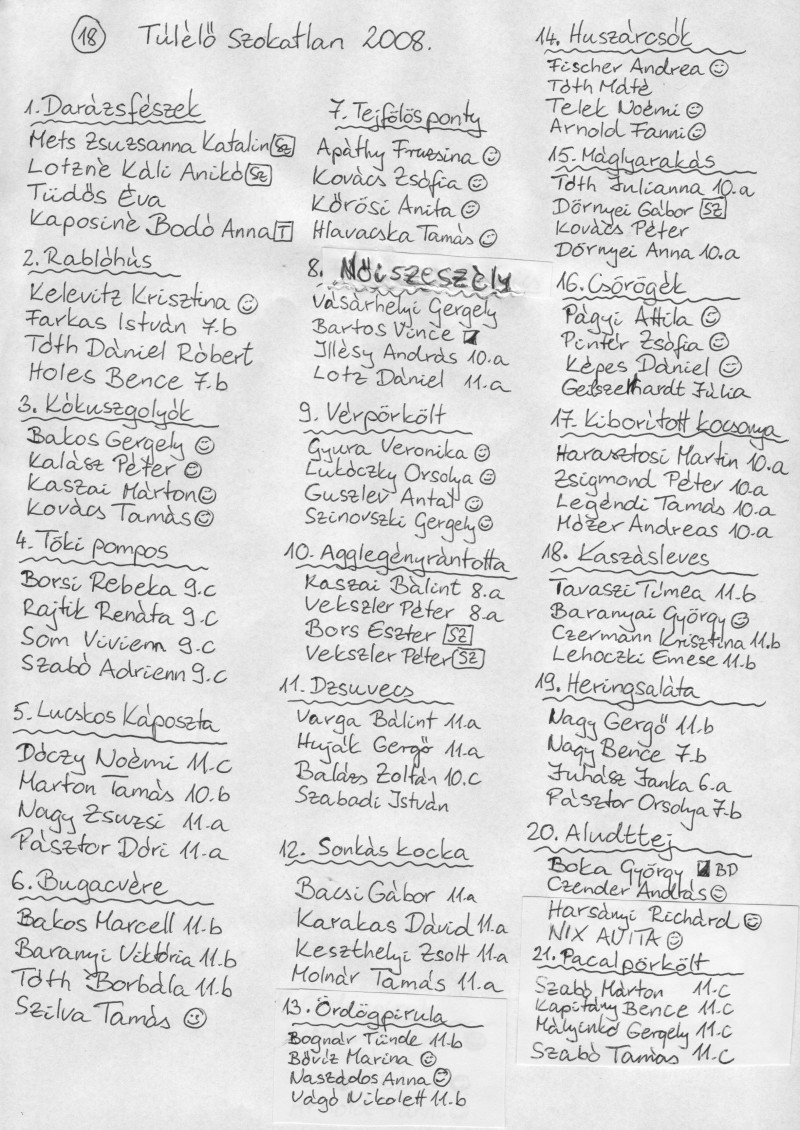 18 Túlélő Szokatlan 2008.
1. Darázsfészek
Mets Zsuzsanna Katalin Sz
Lotzné Káli Anikó Sz
Tüdős Éva
Kaposiné Bodó Anna T
2. Rablóhús
Kelevitz Krisztina ☺
Farkas István 7.b
Tóth Dániel Róbert
Holes Bence 7.b
3. Kókuszgolyók
Bakos Gergely ☺
Kalász Péter ☺
Kaszai Márton ☺
Kovács Tamás ☺
4. Tóki pompos
Borsi Rebeka 9.c
Rajtik Renáta 9.c
Som Vivienn 9.c
Szabó Adrienn 9.c
5. Lucskos Káposzta
Dóczy Noémi 11.c
Marton Tamás 10.b
Nagy Zsuzsi 11.a
Pásztor Dóri 11.a
6. Bugacvére
Bakos Marcell 11.b
Baranyi Viktória 11.b
Tóth Borbála 11.b
Szilva Tamás ☺
7. Tejfölös ponty
Apáthy Fruzsina ☺
Kovács Zsófia ☺
Kőrösi Anita ☺
Hlavacska Tamás ☺
8. Női szeszély
Vásárhelyi Gergely
Bartos Vince
Illésy András 10.a
Lotz Dániel 11.a
9. Vérpörkölt
Gyura Veronika ☺
Lukóczky Orsolya ☺
Guszlev Antal ☺
Szinovszki Gergely ☺
10. Agglegényrántotta
Kaszai Bálint 8.a
Vekszler Péter 8.a
Bors Eszter SZ
Vekszler Péter SZ
11. Dzsuvecs
Varga Bálint 11.a
Huják Gergő 11.a
Balázs Zoltán 10.c
Szabadi István
12. Sonkás kocka
Bacsi Gábor 11.a
Karakas Dávid 11.a
Keszthelyi Zsolt 11.a
Molnár Tamás 11.a
13. Ördögpirula
Bognár Tünde 11.b
Bővíz Marina ☺
Naszádos Anna ☺
Vágó Nikolett 11.b
14. Huszárcsók
Fischer Andrea ☺
Tóth Máté
Telek Noémi ☺
Arnold Fanni ☺
15. Máglyarakás
Tóth Julianna 10.a
Dörnyei Gábor SZ
Kovács Péter
Dörnyei Anna 10.a
16. Csörögék
Págyi Attila ☺
Pintér Zsófia ☺
Képes Dániel ☺
Geiszelhardt Júlia
17. Kiborított kocsonya
Harasztosi Martin 10.a
Zsigmond Péter 10.a
Legéndi Tamás 10.a
Mózer Andreas 10.a
18. Kaszásleves
Tavaszi Tímea 11.b
Baranyai György ☺
Czermann Krisztina 11.b
Lehoczki Emese 11.b
19. Heringsaláta
Nagy Gergő 11.b
Nagy Bence 7.b
Juhász Janka 6.a
Pásztor Orsolya 7.b
20. Aludttej
Boka György BD
Czender András ☺
Harsányi Richárd ☺
NIX AVITA ☺
21. Pacalpörkölt
Szabó Márton 11.c
Kapitány Bence 11.c
Mályinkó Gergely 11.c
Szabó Tamás 11.c